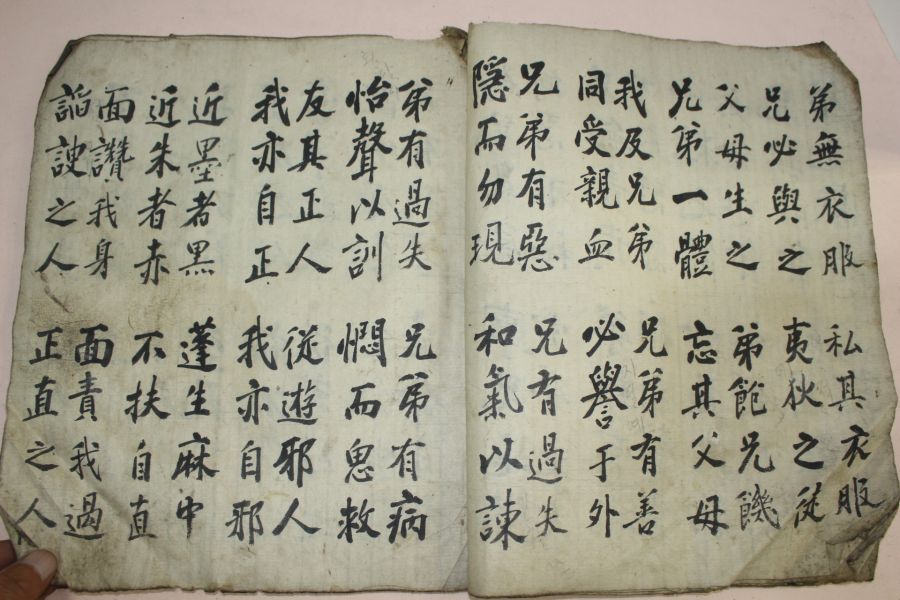 弟無衣服
兄必與之
私其衣服
夷狄之徒
父母生之
兄弟一體
弟飽兄饑
忘其父母
我及兄弟
同受親血
兄弟有善
必譽于外
兄弟有惡
隱而勿現
兄有過失
和氣以諫
弟有過失
怡聲以訓
兄弟有病
憫而思救
友其正人
我亦自正
從遊邪人
我亦自邪
近墨者黑
近朱者赤
蓬生麻中
不扶自直
面讚我身
諂諛之人
面責我過
正直之人